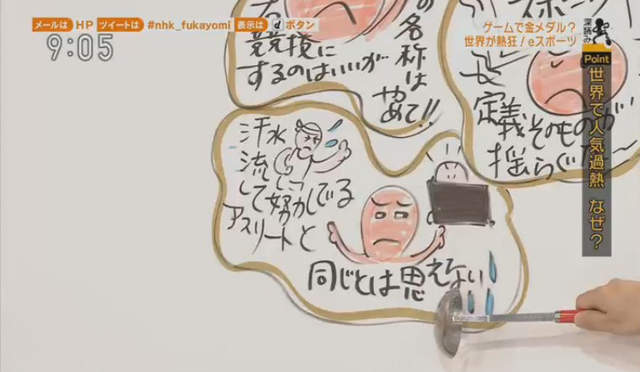 メールは HP ツイートは #nhk_fukayomi 表示は dボタン
9:05
ゲームで金メダル?
世界が熱狂!eスポーツ
深読み
Point
世界で人気過熱 なぜ?
競技に
するのはいいが
の名称は
やめて!!
定義そのものが
揺らぐ
汗水
流して
して努力してる
アスリートと
同じとは思えない